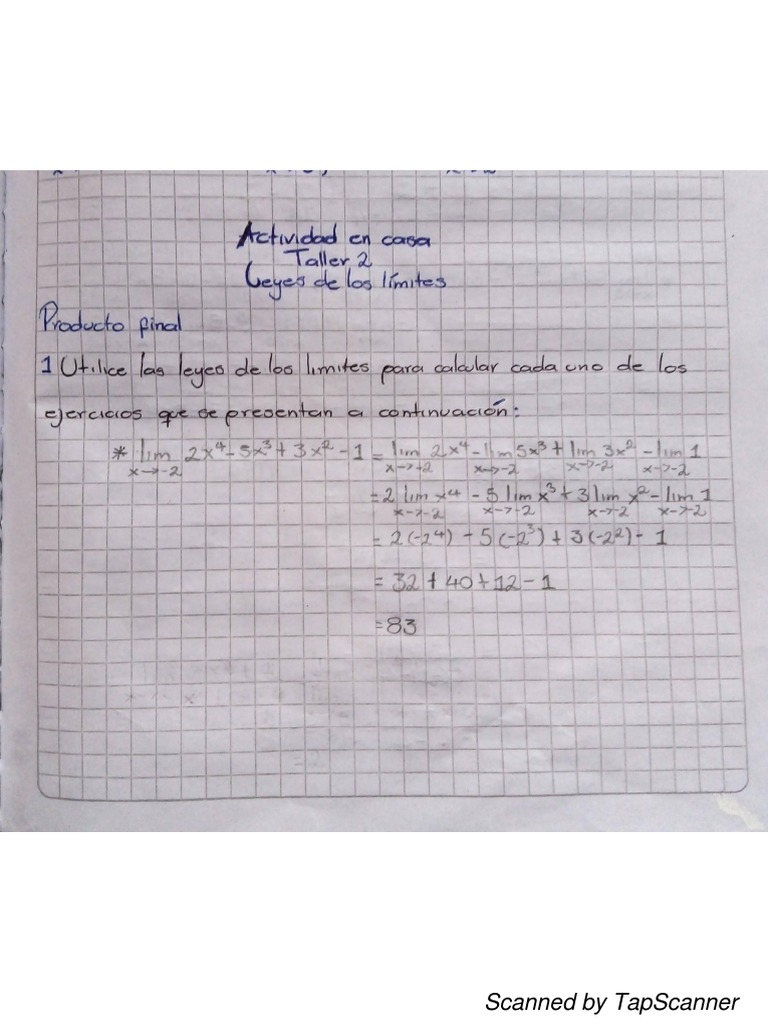 Actividad en casa
Taller 2
Leyes de los límites
Producto final
1 Utilice las leyes de los limites para calcular cada uno de los
ejercicios que se presentan a continuación:
* lim x→-2 2x⁴ - 5x³ + 3x² - 1 = lim x→-2 2x⁴ - lim x→-2 5x³ + lim x→-2 3x² - lim x→-2 1
= 2 lim x→-2 x⁴ - 5 lim x→-2 x³ + 3 lim x→-2 x² - lim x→-2 1
= 2(-2⁴) - 5(-2³) + 3(-2²) - 1
= 32 + 40 + 12 - 1
= 83
Scanned by TapScanner